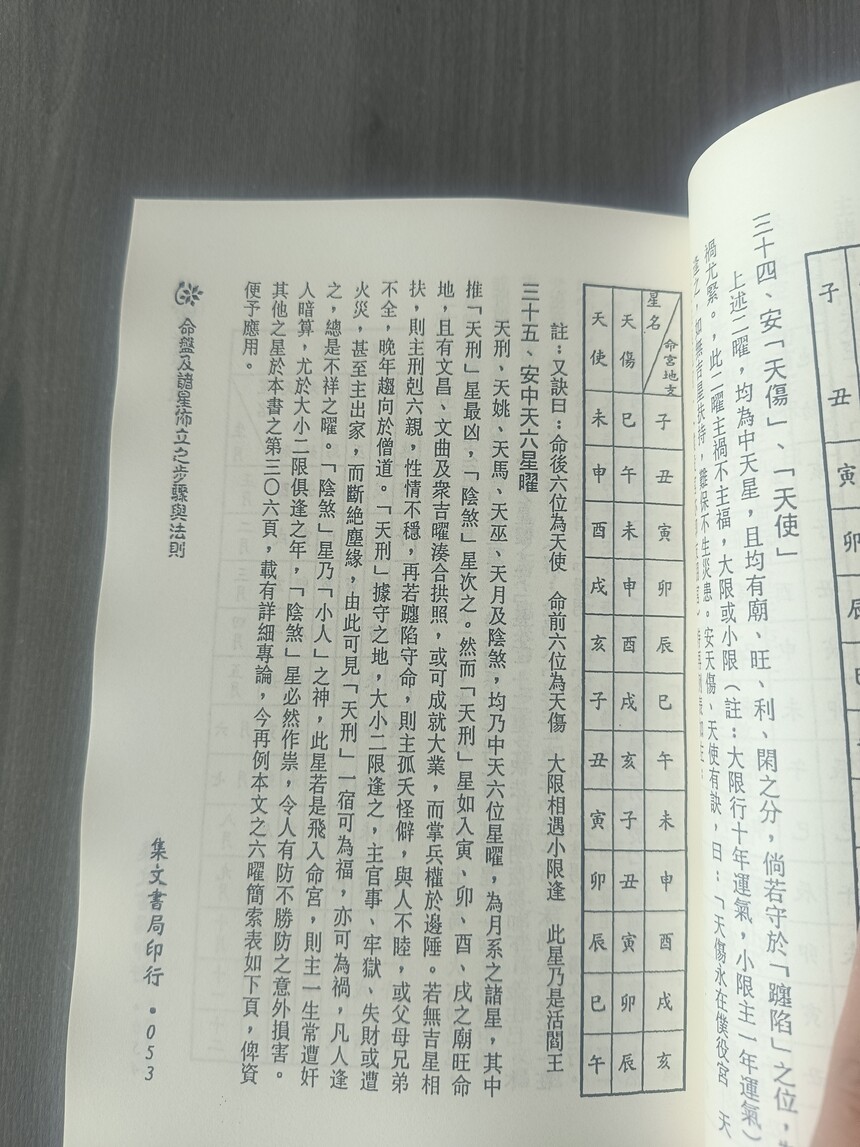 子
丑
寅
卯
辰
三十四、安「天傷」、「天使」
上述二曜，均為中天星，且均有廟、旺、利、閑之分，倘若守於「躔陷」之位，
禍尤緊。，此二曜主禍不主福，大限或小限（註：大限行十年運氣，小限主一年運氣）
逢之，如無吉星扶持，難保不生災患。安天傷、天使有訣，曰：「天傷永在僕役宮　天
星名　命宮地支　子　丑　寅　卯　辰　巳　午　未　申　酉　戌　亥
天傷　巳　午　未　申　酉　戌　亥　子　丑　寅　卯　辰
天使　未　申　酉　戌　亥　子　丑　寅　卯　辰　巳　午
註：又訣曰：命後六位為天使　命前六位為天傷　大限相遇小限逢　此星乃是活閻王
三十五、安中天六星曜
天刑、天姚、天馬、天巫、天月及陰煞，均乃中天六位星曜，為月系之諸星，其中
推「天刑」星最凶，「陰煞」星次之。然而「天刑」星如入寅、卯、酉、戌之廟旺命
地，且有文昌、文曲及衆吉曜湊合拱照，或可成就大業，而掌兵權於邊陲。若無吉星相
扶，則主刑剋六親，性情不穩，再若躔陷守命，則主孤夭怪僻，與人不睦，或父母兄弟
不全，晚年趨向於僧道。「天刑」據守之地，大小二限逢之，主官事、牢獄、失財或遭
火災，甚至主出家，而斷絕塵緣，由此可見「天刑」一宿可為福，亦可為禍，凡人逢
之，總是不祥之曜。「陰煞」星乃「小人」之神，此星若是飛入命宮，則主一生常遭奸
人暗算，尤於大小二限俱逢之年，「陰煞」星必然作祟，令人有防不勝防之意外損害。
其他之星於本書之第三〇六頁，載有詳細專論，今再例本文之六曜簡索表如下頁，俾資
便予應用。
命盤及諸星佈立之步驟與法則
集文書局印行・053